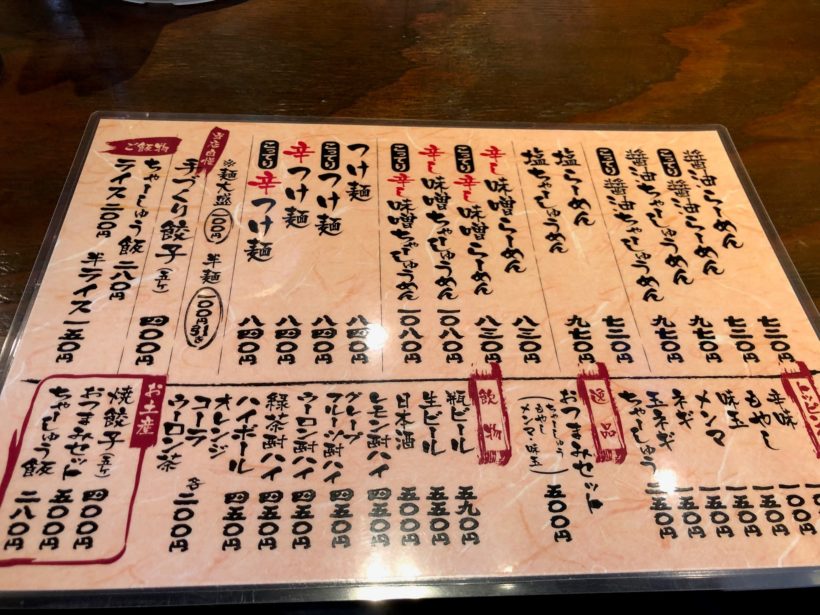 醤油らーめん 七三〇円
こってり 醤油らーめん 七三〇円
醤油ちゃーしゅうめん 九七〇円
こってり 醤油ちゃーしゅうめん 九七〇円
塩らーめん 七三〇円
塩ちゃーしゅうめん 九七〇円
辛し味噌らーめん 八三〇円
こってり 辛し味噌らーめん 八三〇円
辛し味噌ちゃーしゅうめん 一〇八〇円
こってり 辛し味噌ちゃーしゅうめん 一〇八〇円
つけ麺 八四〇円
こってり つけ麺 八四〇円
辛つけ麺 八四〇円
こってり 辛つけ麺 八四〇円
※麺大盛 一〇〇円増 半麺 一〇〇円引き
当店自慢
手づくり餃子(五ヶ) 四〇〇円
ご飯物
ちゃーしゅう飯 二八〇円
ライス 二〇〇円 半ライス 一五〇円
トッピング
辛味
もやし
味玉 一五〇円
メンマ 一五〇円
ネギ 一五〇円
玉ネギ 一五〇円
ちゃーしゅう 二五〇円
逸品
おつまみセット 五〇〇円
(ちゃーしゅう もやし メンマ・味玉)
飲物
瓶ビール 五九〇円
生ビール 五五〇円
日本酒 五〇〇円
レモン酎ハイ 四五〇円
グレープフルーツ酎ハイ 四五〇円
ウーロン酎ハイ 四五〇円
緑茶酎ハイ 四五〇円
ハイボール 四五〇円
オレンジ
コーラ
ウーロン茶 各二〇〇円
お土産
焼餃子(五ヶ) 四〇〇円
おつまみセット 五〇〇円
ちゃーしゅう飯 二八〇円